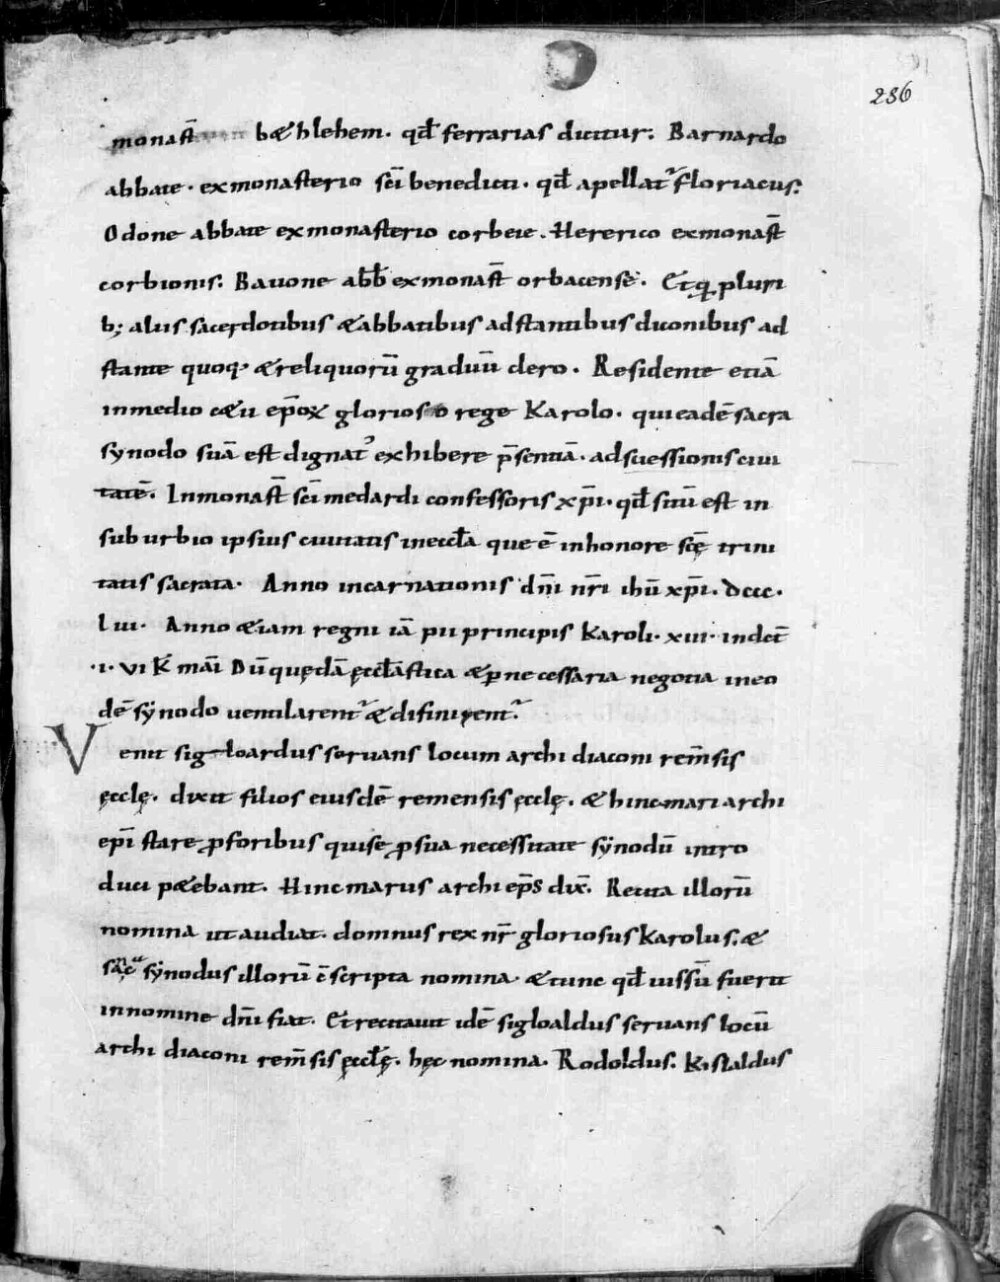 286
monast̄ bethlehem. qd̄ ferrarias dicitur: Barnardo
abbate. ex monasterio sc̄i benedicti. qd̄ apellat᷑ floriacus:
Odone abbate ex monasterio corbeie. Hererico ex monast̄
corbionis: Bauone abb̄ ex monast̄ orbacense. Et q̄ pluri
b; aliis sacerdotibus & abbatibus adstantibus diconibus ad
stante quoq. & reliquorū graduū clero. Residente etiā
in medio c&u ep̄ox glorioso rege Karolo. qui eadē sacra
synodo suā est dignat᷒ exhibere p̄sentiā. ad suessionis ciui
tatē. In monast̄ sc̄i medardi confessoris xp̄i. qd̄ sitū est in
suburbio ipsius ciuitatis in eccl̄a que ē in honore sc̄ę trini
tatis sacrata. Anno incarnationis dn̄i nr̄i ihū xp̄i. dccc.
liii. Anno &iam regni iā pii principis Karoli. xiii. indct̄
.i. vi k̄ mai Dū quędā ęccl̄astica & p̱necessaria negotia in eo
dē synodo uentilarent᷑ & difinirent᷑.
Venit sigloardus seruans locum archi diaconi rem̄sis
ęcclę. dixit filios eiusdē remensis ęcclę. & hincmari archi
epi stare ꝓ foribus qui se ꝓ sua necessitate synodū intro
duci p&ebant. Hincmarus archi ep̄s dix̄. Recita illorū
nomina ut audiat. domnus rex nr̄ gloriosus Karolus: &
sāc synodus illorū c̄scripta nomina. & tunc qd̄ iussū fuerit
in nomine dn̄i fiat. Et recitauit idē sigloaldus seruans locū
archi diaconi rem̄sis ęccl̄ę. hęc nomina. Rodoldus. Kistaldus